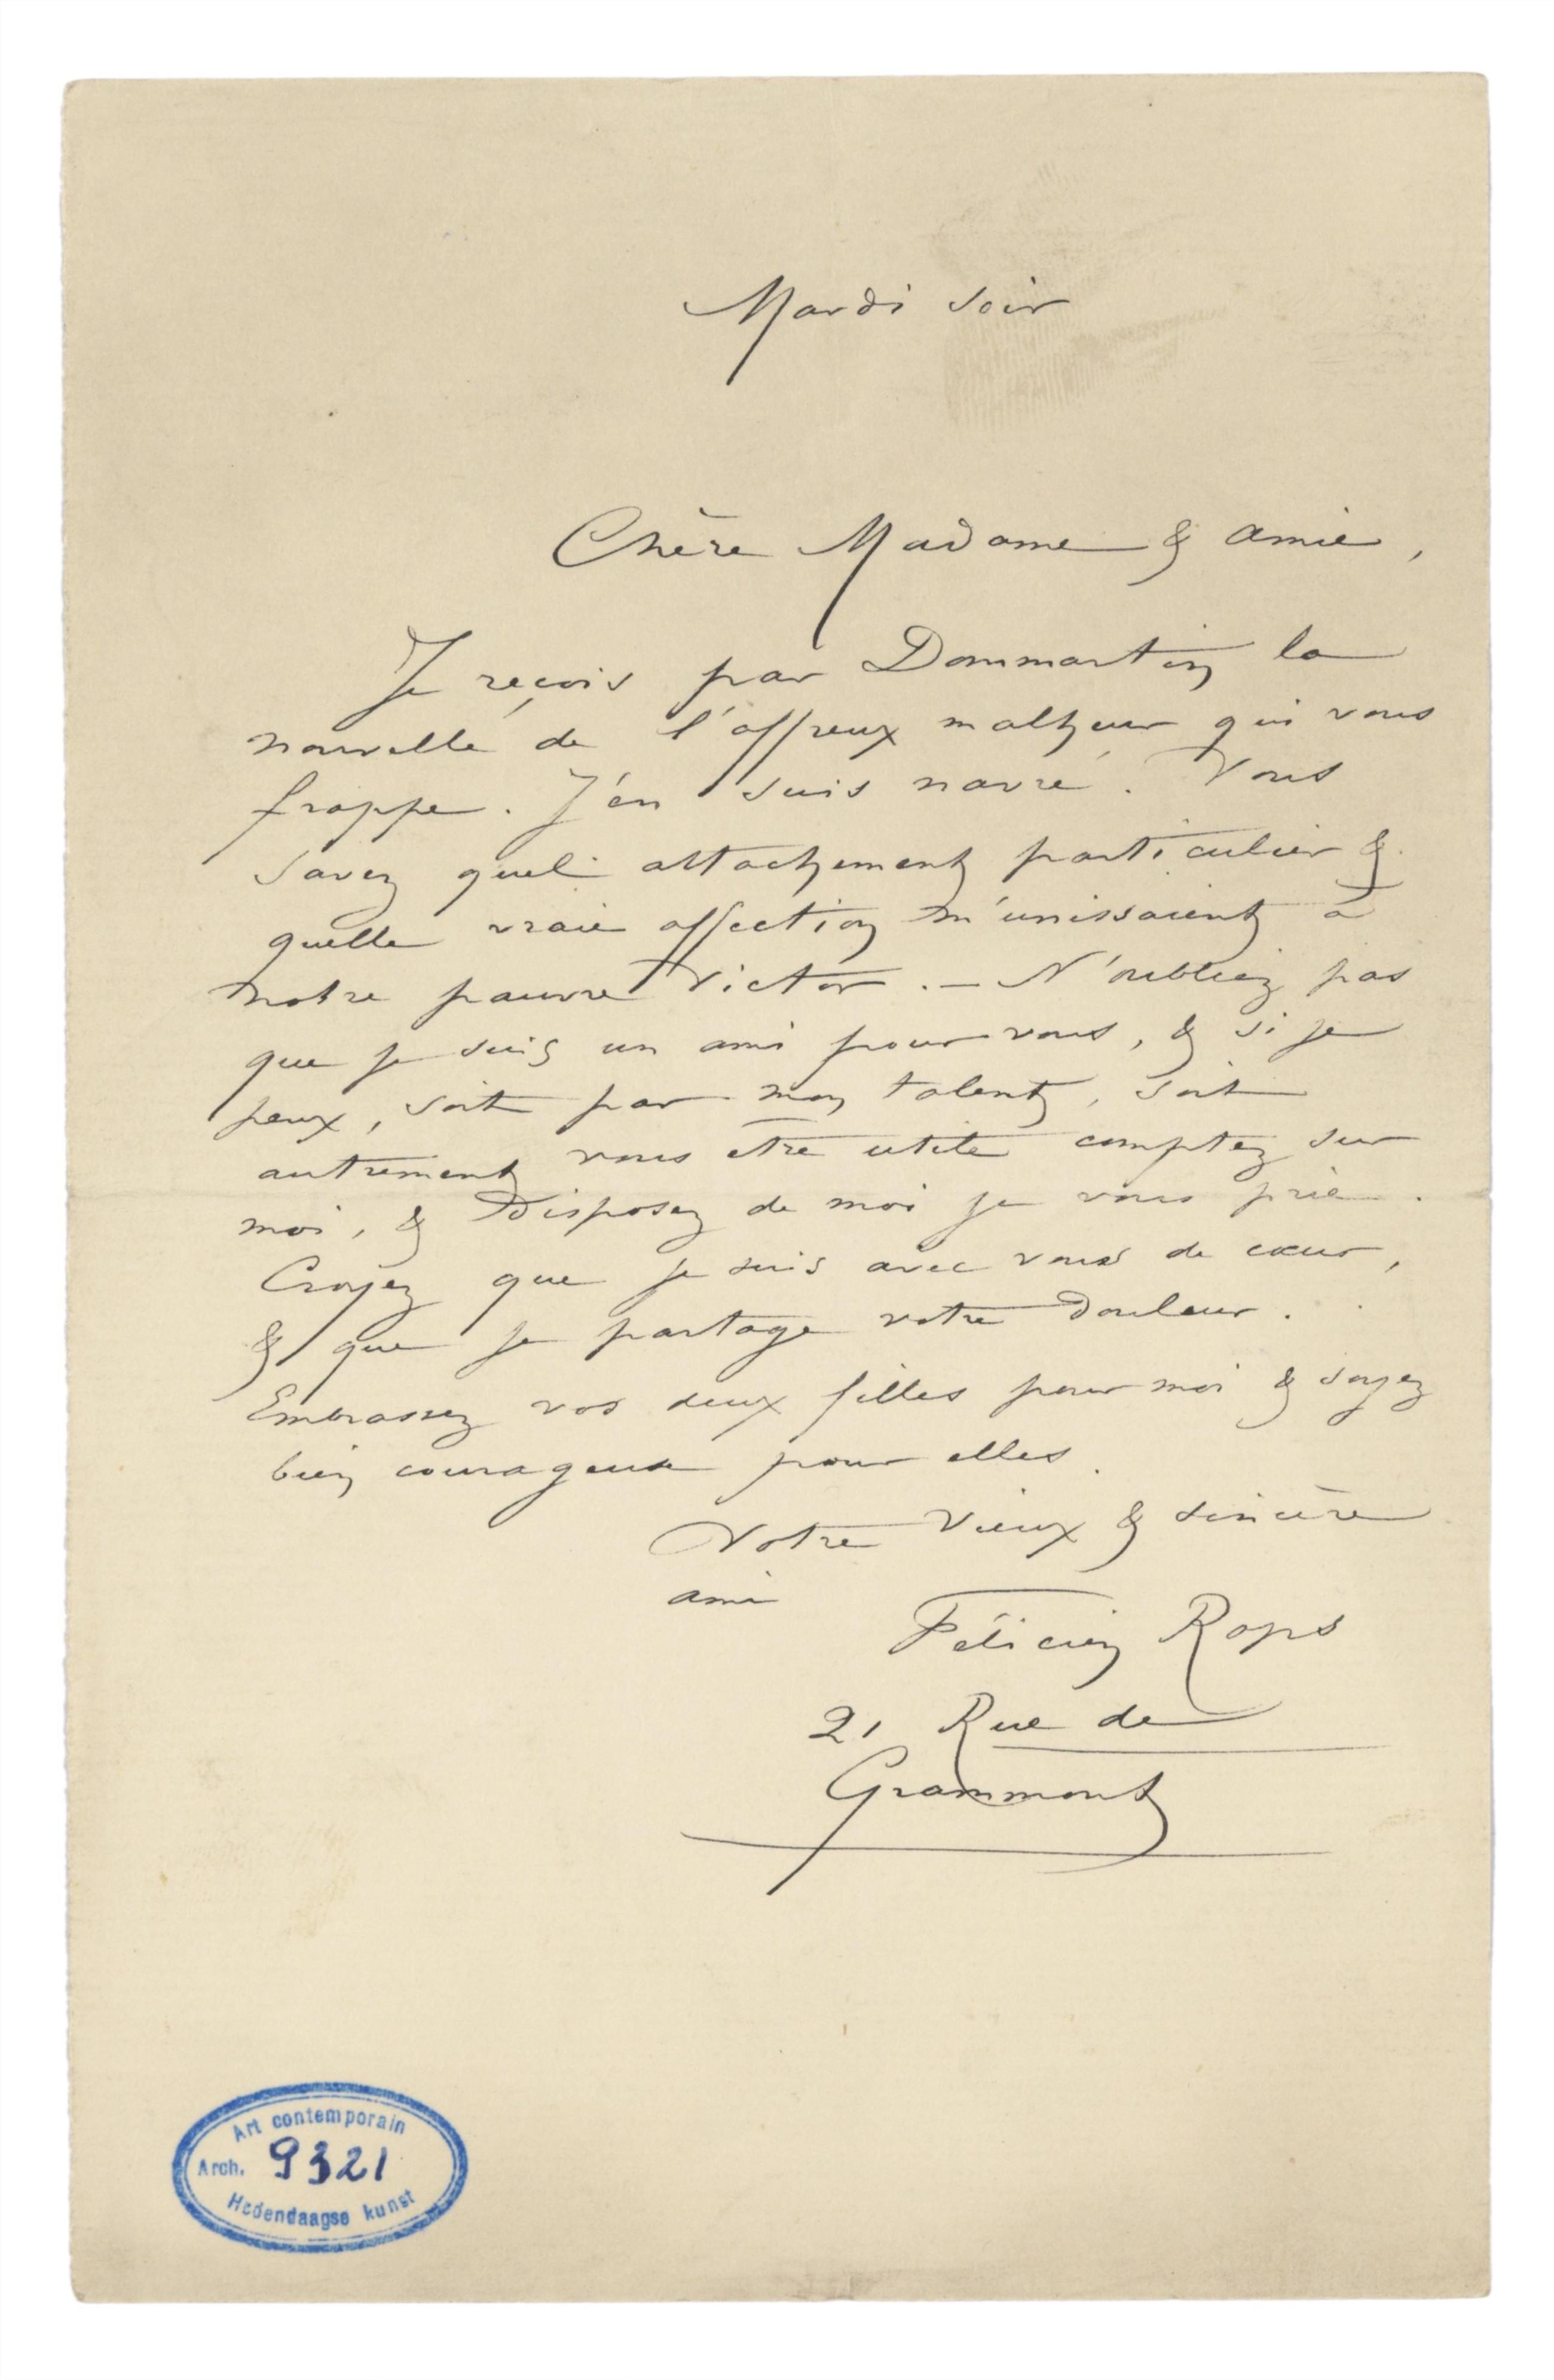 Mardi soir
Chère Madame & amie,
Je reçois par Dommartin la
nouvelle de l'affreux malheur qui vous
frappe. J'en suis navré. Vous
savez quel attachement particulier &
quelle vraie affection m'unissaient à
notre pauvre Victor. – N'oubliez pas
que je suis un ami pour vous, & si je
peux, soit par mon talent, soit
autrement vous être utile comptez sur
moi, & disposez de moi je vous prie.
Croyez que je suis avec vous de cœur,
& que je partage votre douleur.
Embrassez vos deux filles pour moi & soyez
bien courageuse pour elles.
Votre vieux & sincère
ami
Félicien Rops
21 Rue de
Grammont
Art contemporain
Arch. 9321
Hedendaagse kunst